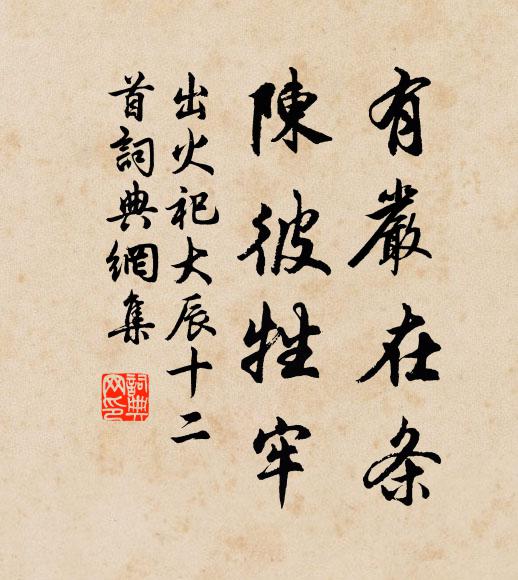 有嚴在条
陳彼牲牢
出火祀大辰十二
首詞典網集
詞典
网印